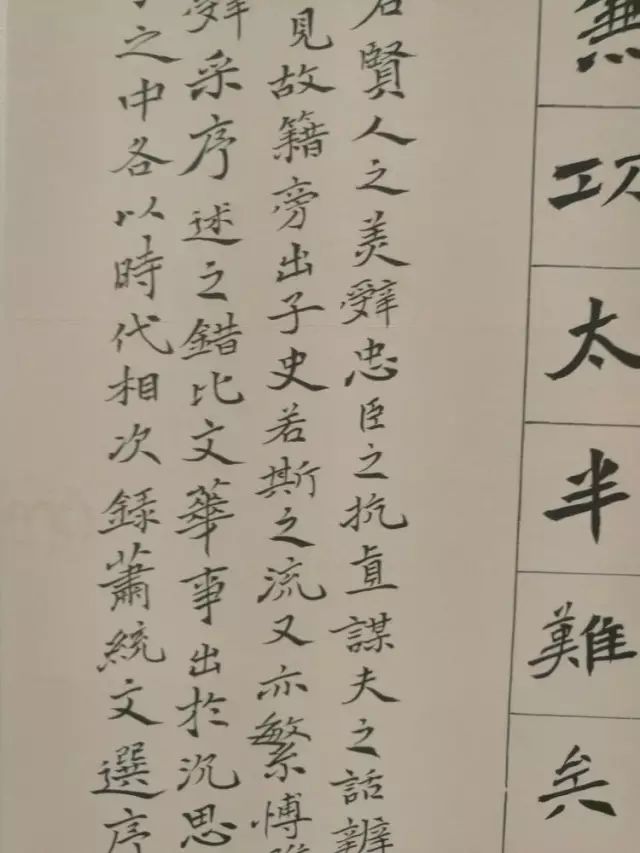 無功太半難矣
賢人之美辭忠臣之抗直謀夫之話
見故籍旁出子史若斯之流又亦繁愽
辭采序述之錯比文華事出於沉思
之中各以時代相次錄蕭統文選序